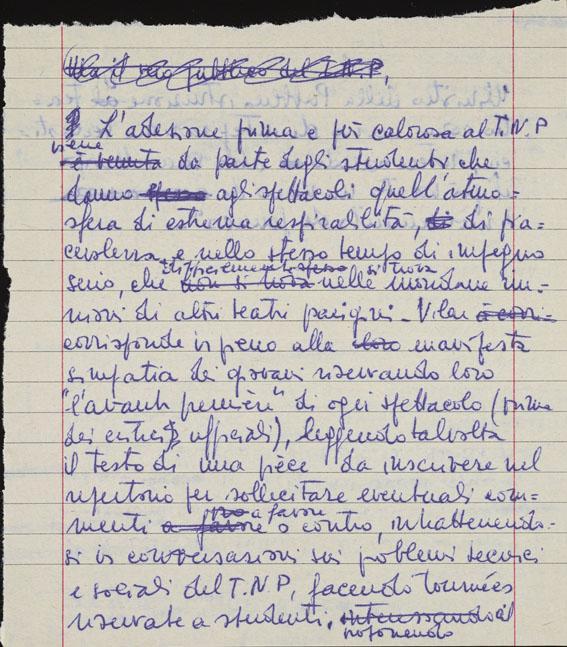 Ma il vero pubblico del T.N.P.
L'adesione prima e più calorosa al T.N.P
viene
è venuta da parte degli studenti che
danno spesso agli spettacoli quell'atmo-
sfera di estrema respirabilità, di di pia-
cevolezza e nello stesso tempo di impegno
difficilmente si trova
serio, che non si trova nelle mondane riu-
nioni di altri teatri parigini - Vilar
corrisponde in pieno alla loro manifesta
simpatia dei giovani riservando loro
"l'avant première" di ogni spettacolo (prima
dei critici ufficiali), leggendo talvolta
il testo di una pièce da inscrivere nel
repertorio per sollicitare eventuali com-
a favore
menti a favore o contro, intrattenendo-
si in conversazioni sui problemi tecnici
e sociali del T.N.P, facendo tournées
riservate a studenti.